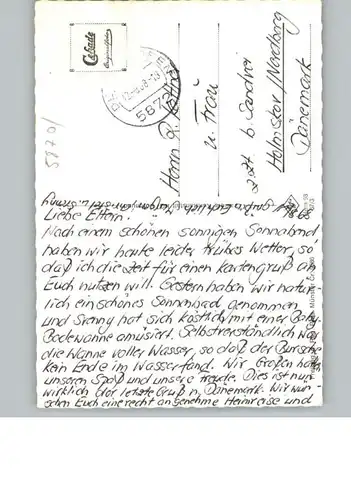 Cekade
12.-8.68-18
587
5870/
Herrn R.
u. Frau
z.Zt. b.
Holmskov/Nordborg
Dänemark
11/8 68
Liebe Eltern!
Nach einem schönen sonnigen Sonnabend
haben wir heute leider trübes Wetter, so
daß ich die Zeit für einen Kartengruß an
Euch nutzen will. Gestern haben wir natür
lich ein schönes Sonnenbad genommen
und hat sich köstlich mit einer Baby
Badewanne amüsiert. Selbstverständlich war
die Wanne voller Wasser, so daß der Bursche
kein Ende im Wasser fand. Wir Großen hatten
unseren Spaß und unsere Freude. Dies ist nun
wirklich der letzte Gruß n. Dänemark. Wir wün-
schen Euch eine recht angenehme Heimreise und